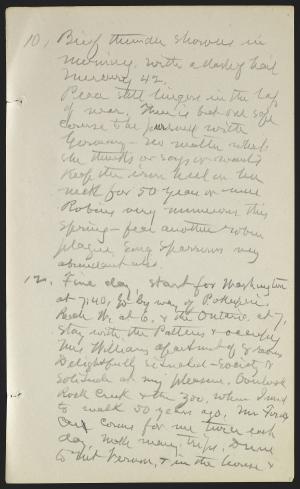 10, Brief thunder showers in
morning with a dash of hail
Mercury 42.
Peace still lingers in the lap
of war, There is but one safe
course to be pursued with
Germany – no matter what
she thinks or says or wants
keep the iron heel on her
neck for 50 years or more
Robins very numerous this
Spring – fear another robin
plague, Song Sparrows very
abundant also.
12. Fine day, start for Washington
at 7:40, by way of Pokepsie.
Reach W. at 6. & the Ontario at 7,
Stay with the & occupy
Mrs Williams apartment of 5 rooms
Delightfully situated – Society &
Solitude at my pleasure. Overlook
Rock Creek & the Zoo, where I used
to walk 50 years ago, Mr Fords
Car comes for me twice each
day, make many trips. Drive
to Mt Vernon, & in the house &